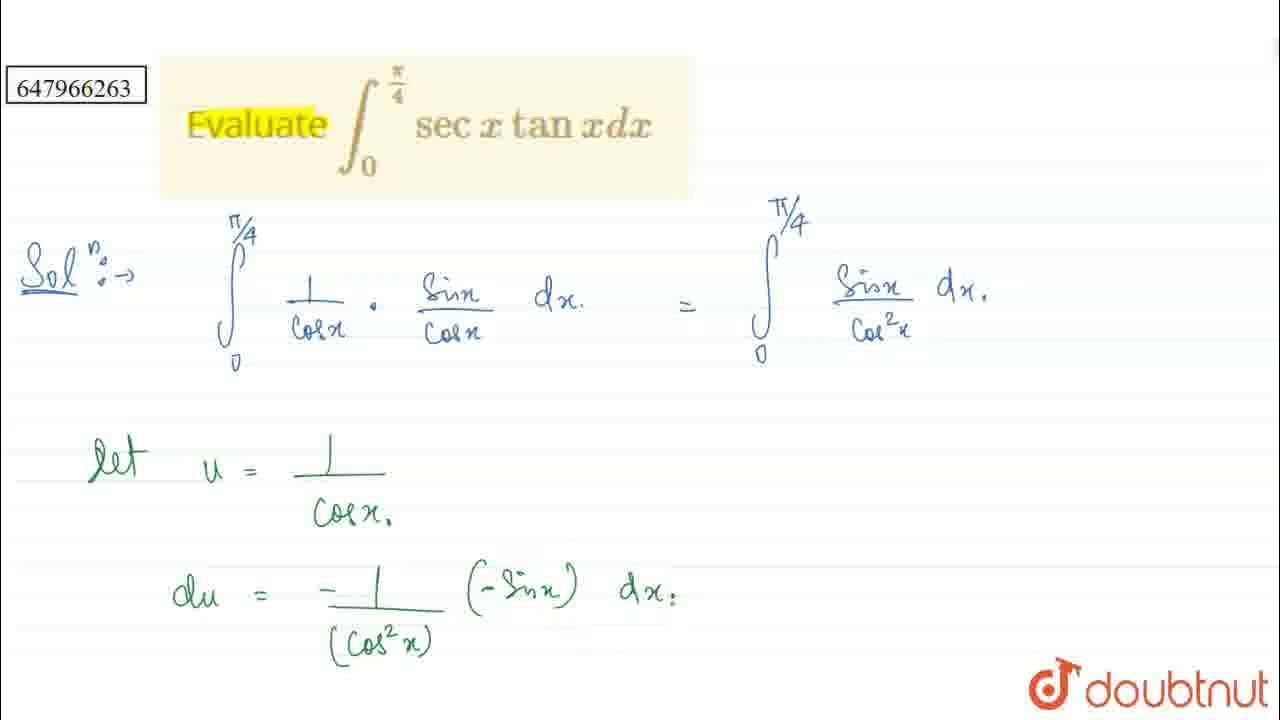 647966263
Evaluate ∫₀^{π/4} sec x tan x dx
Solⁿ: → ∫₀^{π/4} 1/cosx · Sinx/cosx dx. = ∫₀^{π/4} Sinx/Cos²x dx.
let u = 1/Cosx.
du = -1/(Cos²x) (-Sinx) dx.
doubtnut